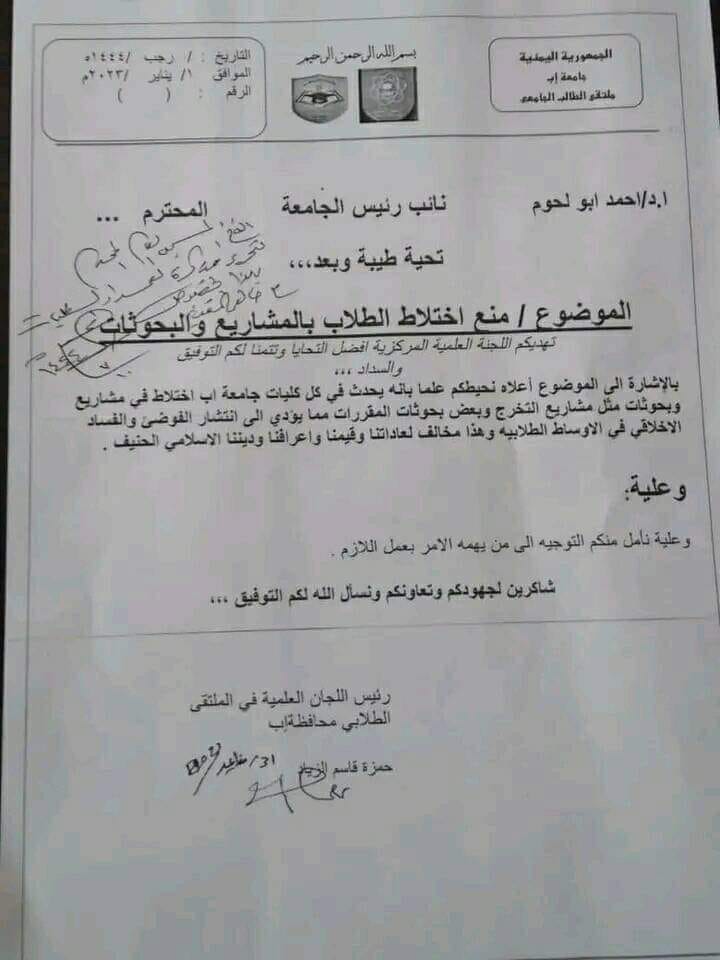 بسم الله الرحمن الرحيم
الجمهورية اليمنية
جامعة إب
ملتقى الطالب الجامعي
التاريخ : / رجب /١٤٤٤ه
الموافق : ١/ يناير /٢٠٢٣م
الرقم : ( )
ا.د/احمد ابو لحوم نائب رئيس الجامعة المحترم ...
تحية طيبة وبعد،،،
الموضوع / منع اختلاط الطلاب بالمشاريع والبحوثات
تهديكم اللجنة العلمية المركزية افضل التحايا وتتمنا لكم التوفيق
والسداد ،،،
بالإشارة الى الموضوع أعلاه نحيطكم علما بانه يحدث في كل كليات جامعة اب اختلاط في مشاريع
وبحوثات مثل مشاريع التخرج وبعض بحوثات المقررات مما يؤدي الى انتشار الفوضئ والفساد
الاخلاقي في الاوساط الطلابيه وهذا مخالف لعاداتنا وقيمنا واعرافنا وديننا الاسلامي الحنيف .
وعلية:
وعلية نأمل منكم التوجيه الى من يهمه الامر بعمل اللازم .
شاكرين لجهودكم وتعاونكم ونسأل الله لكم التوفيق ،،،
رئيس اللجان العلمية في الملتقى
الطلابي محافظةإب
حمزة قاسم